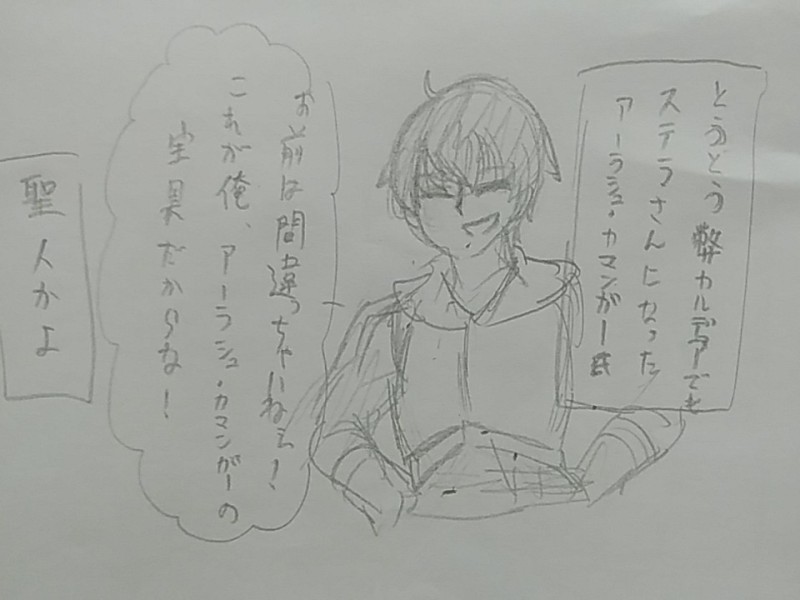 とうとう弊カルデアでも
ステラさんになった
アーラシュ・カマンガー氏
お前は間違っちゃいねぇ！
これが俺、アーラシュ・カマンガーの
宝具だからな！
聖人かよ